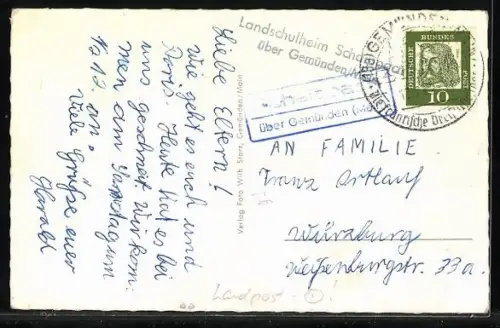 Liebe Eltern!
wie geht es euch und
Doris. Heute hat es bei
uns geschneit. Wir kom-
men am Samstag um
12 an.
Viele Grüße euer
Harald
Verlag Foto Wilh. Gemünden/Main
Landschulheim
über Gemünden/Main
über Gemünden (Main)
GEMÜNDEN
DEUTSCHE
BUNDES
POST
10
AN FAMILIE
Franz Ortlauf
Würzburg
Weißenburgstr. 33a.
Landpost